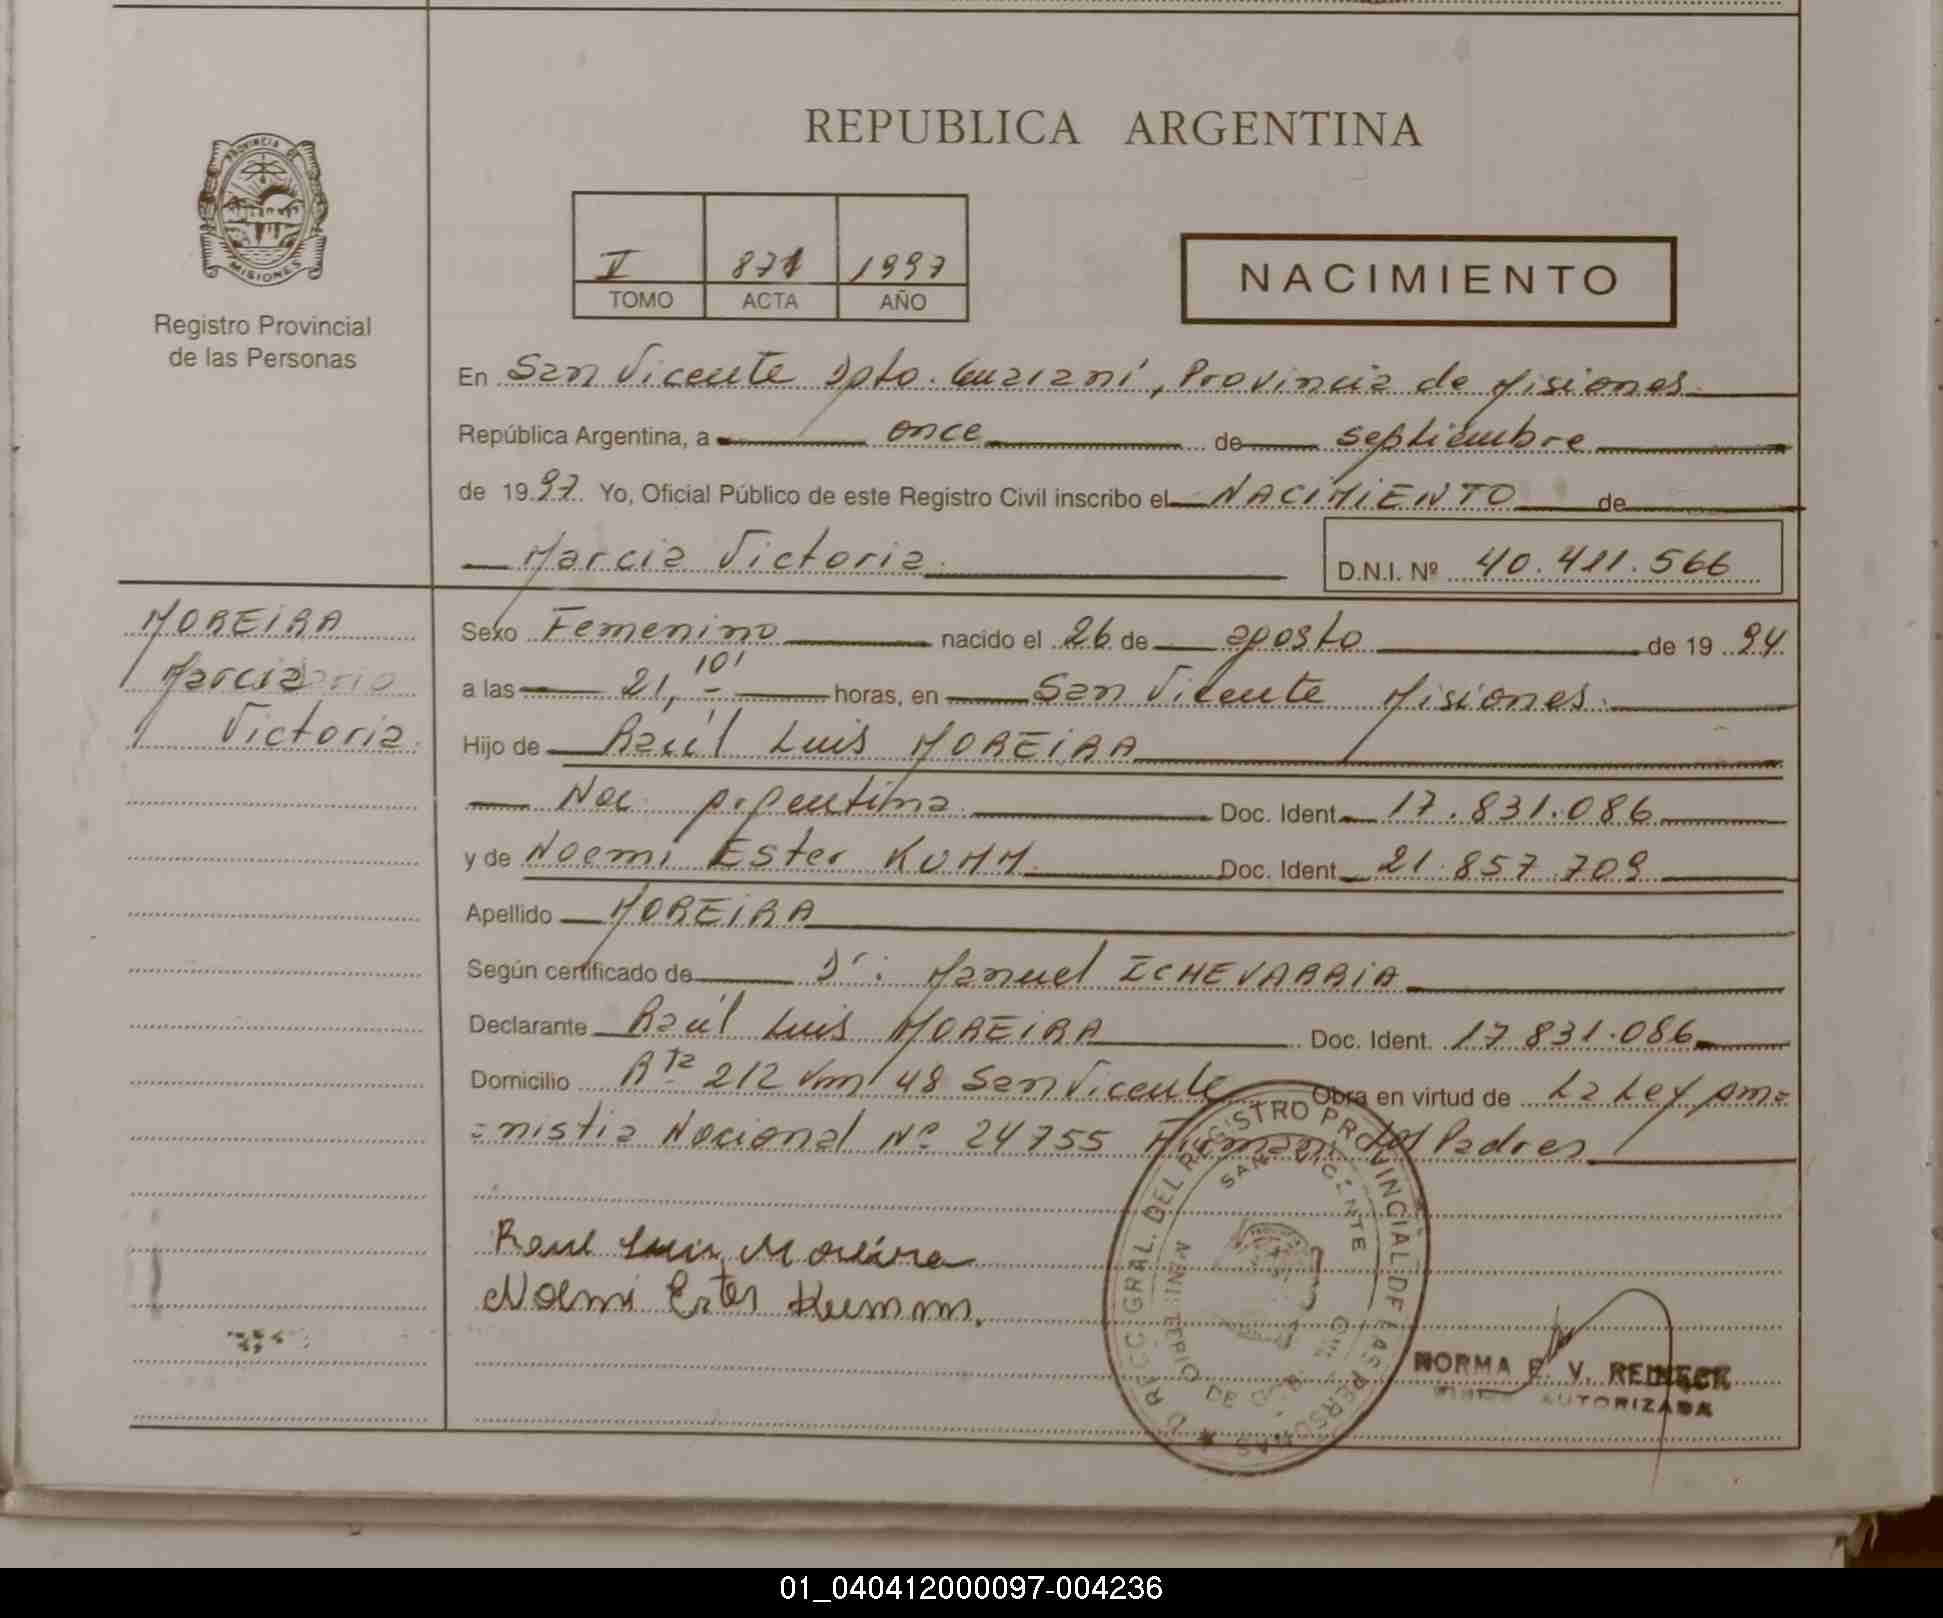 REPUBLICA ARGENTINA
PROVINCIA DE
MISIONES
Registro Provincial
de las Personas
V 871 1997
TOMO ACTA AÑO
NACIMIENTO
En San Vicente Dpto. Guaraní, Provincia de Misiones
República Argentina, a once de septiembre
de 1997 Yo, Oficial Público de este Registro Civil inscribo el NACIMIENTO de
Marcia Victoria
D.N.I. Nº 40.411.566
MOREIRA
Marcia
Victoria
Sexo Femenino nacido el 26 de agosto de 1994
a las 21,10' horas, en San Vicente Misiones
Hijo de Raúl Luis MOREIRA
Nac. Argentina Doc. Ident. 17.831.086
y de Noemi Ester KUMM Doc. Ident. 21.857.709
Apellido MOREIRA
Según certificado de Dr: Manuel ECHEVARRIA
Declarante Raúl Luis MOREIRA Doc. Ident. 17831.086
Domicilio Rta 212 Km 48 San Vicente Obra en virtud de La Ley Am=
=nistia Nacional Nº 24755 Firman Los Padres
Raul Luis Moreira
Noemi Ester Kumm.
REGISTRO PROVINCIAL DE LAS PERSONAS
SAN VICENTE
NORMA E. V. REINECK
AUTORIZADA
01_040412000097-004236